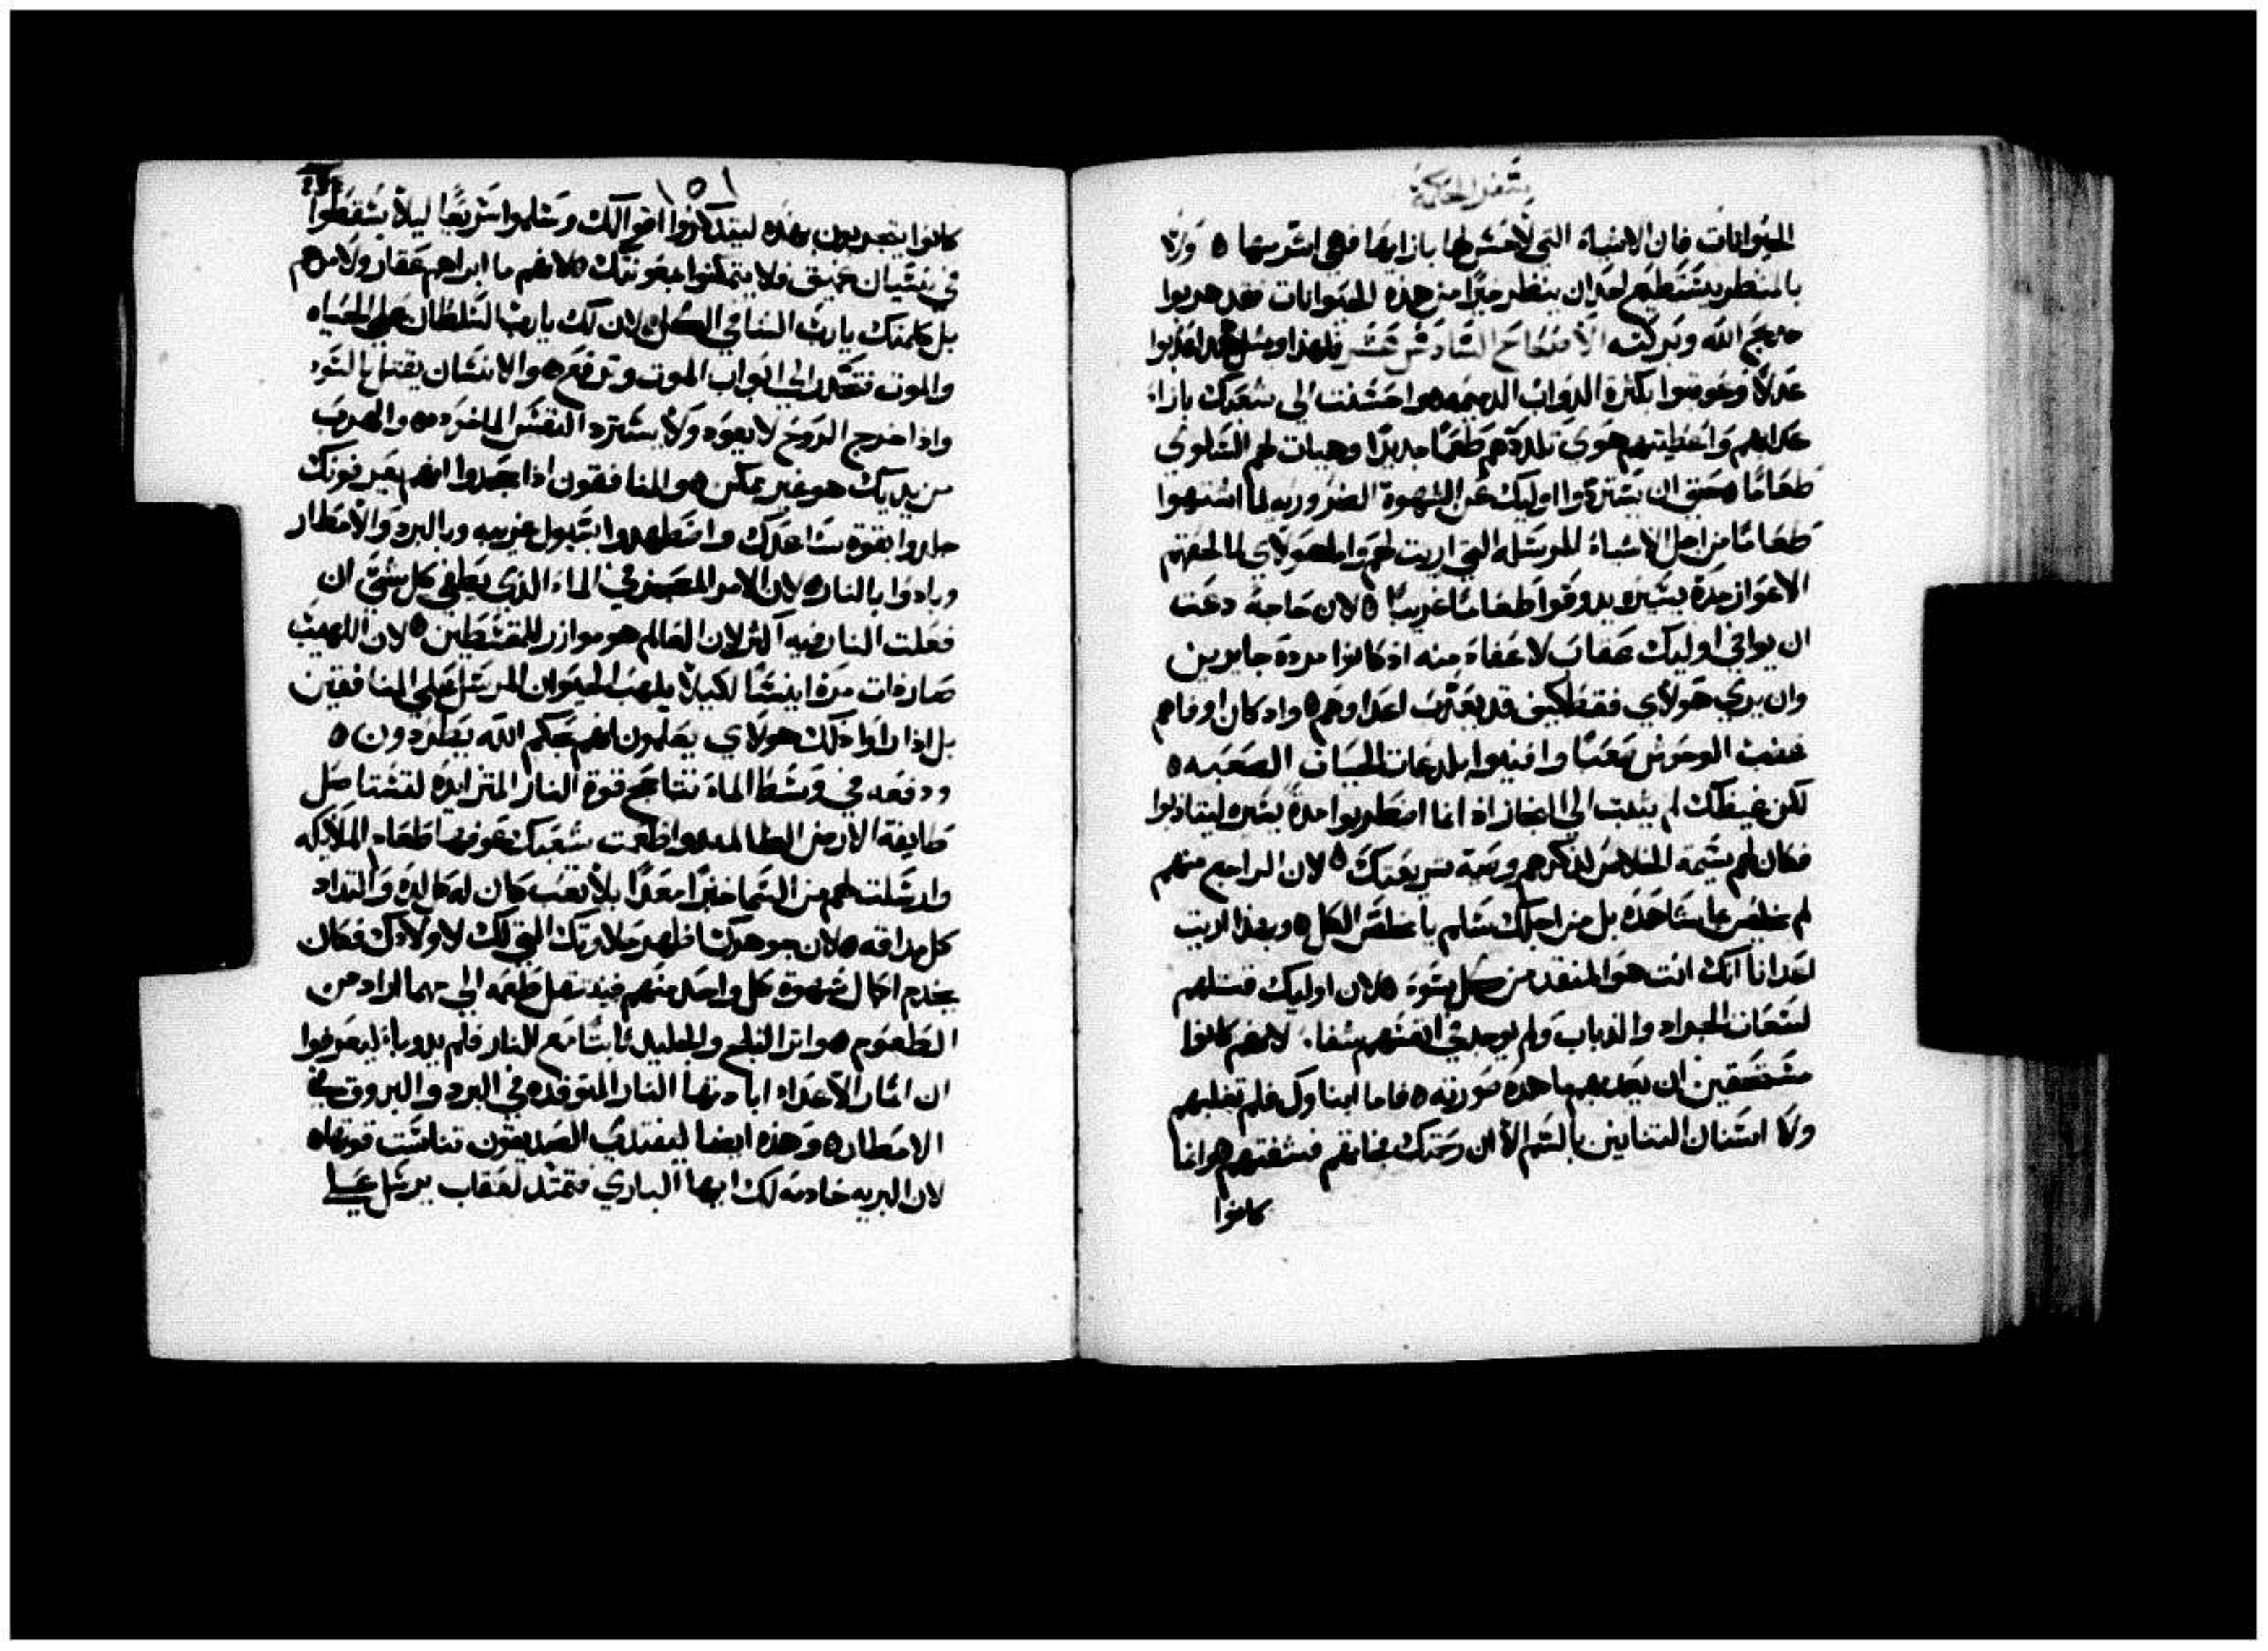 سفر الحكمة
الحيوانات فان الاشياء التي لا حس لها بازايها فهي اشر منها ٥ ولا
بالمنظر يستطيع احد ان ينظر خيرًا من هذه الحيوانات فقد هربوا
الله وبركته الاصحاح السادس عشر فلهذا وبمثل هذا عذبوا
عدلًا وعوقبوا بكثرة الدواب البهيمه ٥ واحسنت الي شعبك بازاء
عدابهم واعطيتهم هوي تلددهم طعمًا جديدًا وهيات لهم السلوي
طعامًا حتي ان يسترد اوليك عن الشهوة الضروريه لما اشتهوا
طعامًا من اجل الاشياء المرسله التي اريت لهم واما هولاي لما لحقهم
الاعواز مدة يسيره يدوقوا طعامًا غريبًا ٥ لان حاجة دعت
ان يوافي اوليك عقاب لا عفاء منه اذ كانوا مردة جايرين
وان يري هولاي فقط كيف قد يعذب اعداوهم ٥ واد كان اوفاهم
غضب الوحوش صعبًا وافنيوا بلدغات الحيات الصعبه ٥
لكن غيظك لم يثبت الي الانجاز اذ انما اضطربوا مدة يسيره ليتاذبوا
فكان لهم سيمة الخلاص لذكرهم وصية شريعتك ٥ لان الراجع منهم
لم يخلص بما شاهده بل من اجلك سلم يا مخلص الكل ٥ وبهذا اريت
اعدانا انك انت هو المنقد من كل سوء ٥ لان اوليك قتلهم
لسعات الجراد والدباب ولم يوجد في انفسهم شفاء لانهم كانوا
مستحقين ان يعدبهم ما هذه صورته ٥ فاما ابناوك فلم تغلبهم
ولا اسنان التنانين بالسم لان رحمتك جاتهم فشفتهم هو انما
كانوا
١٥١
كانوا يتجربون بهذه ليتدكروا اقوالك وسلموا سريعًا ليلا يسقطوا
في نسيان عميق فلا يتمكنوا بمعونتك ٥ لانهم ما ابراهم عقار ولا مرهم
بل كلمتك يا رب الشافي الكل ٥ لان لك يا رب السلطان علي الحياه
والموت فتحدر الي ابواب الموت وترفع ٥ والانسان يقتل بالسوء
واذا خرج الروح لا يعود ولا يسترد النفس الماخوده ٥ والهرب
من يديك هو غير ممكن ٥ والمنافقون اذا جحدوا انهم يعرفونك
جلدوا بقوة ساعدك واضطهدوا بسيول غريبه وبالبرد والامطار
وبادوا بالنار ٥ لان الامر المعجز في الماء الذي يطفي كل شي ان
فعلت النار فيه اكثر لان العالم هو موازر للمقسطين ٥ لان اللهيب
صار ذات مرة اينسًا لكيلا يلهب الحيوان المرسل علي المنافقين
بل اذا راوا ذلك هولاي يعلمون انهم بحكم الله يطردون ٥
ودفعه في وسط الماء تتاجج قوة النار المتزايده لتستاصل
طايفة الارض الظالمه ٥ واطعمت شعبك عوضها طعام الملايكه
وارسلت لهم من السما خبزًا معدًا بلا تعب كان له كل لده والتداد
كل مداقه ٥ لان جوهرك اظهر حلاوتك التي لك لاولادك فكان
يخدم اكال شهوة كل واحد منهم فينتقل طعمه الي مهما اراد من
الطعوم ٥ واثر الثلج والجليد ثابتًا مع النار فلم يدوبا ٥ ليعرفوا
ان اثمار الاعداء ابادتها النار المتوقده في البرد والبروق في
الامطار ٥ وهذه ايضا ليغتدي الصديقون تناست قوتها ٥
لان البريه خادمه لك ايها الباري فتمتد لعقاب علي